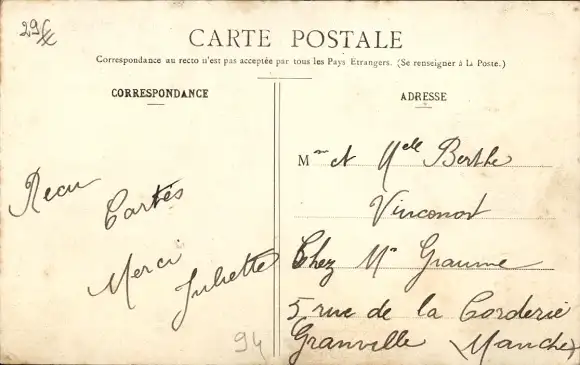 29f
CARTE POSTALE
Correspondance au recto n'est pas acceptée par tous les Pays Etrangers. (Se renseigner à la Poste.)
CORRESPONDANCE
Recu
Cartes
Merci
Juliette
94
ADRESSE
Mme et Melle Berthe
Chez Mr
5 rue de la Corderie
Granville (Manche)